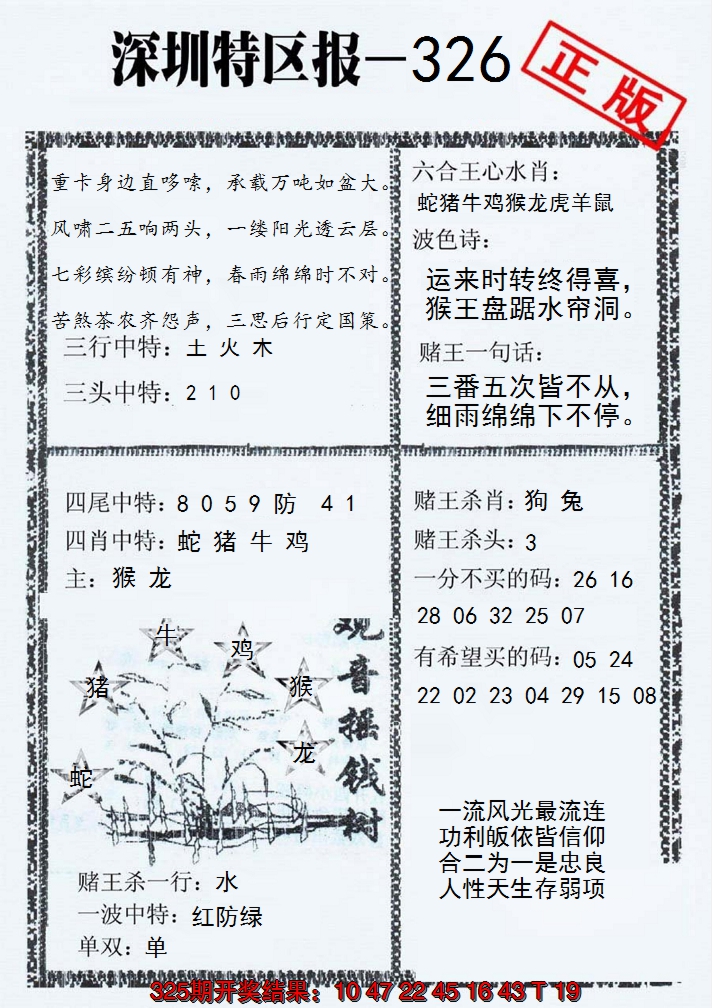 深圳特区报—326
正版
重卡身边直哆嗦，承载万吨如盆大。
风啸二五响两头，一缕阳光透云层。
七彩缤纷顿有神，春雨绵绵时不对。
苦煞茶农齐怨声，三思后行定国策。
三行中特：土 火 木
三头中特：2 1 0
六合王心水肖：
蛇猪牛鸡猴龙虎羊鼠
波色诗：
运来时转终得喜，
猴王盘踞水帘洞。
赌王一句话：
三番五次皆不从，
细雨绵绵下不停。
四尾中特：8 0 5 9 防 4 1
四肖中特：蛇 猪 牛 鸡
主：猴 龙
牛
鸡
猪
猴
龙
蛇
观音摇钱树
赌王杀一行：水
一波中特：红防绿
单双：单
赌王杀肖：狗 兔
赌王杀头：3
一分不买的码：26 16
28 06 32 25 07
有希望买的码：05 24
22 02 23 04 29 15 08
一流风光最流连
功利皈依皆信仰
合二为一是忠良
人性天生存弱项
325期开奖结果：10 47 22 45 16 43 T 19